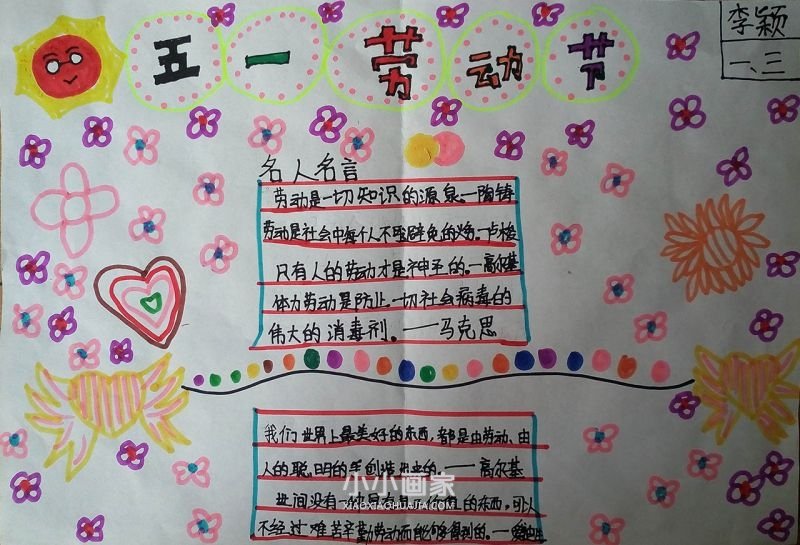 五一劳动节
李颖
一、三
名人名言
劳动是一切知识的源泉。—陶铸
劳动是社会中每个人不可避免的义务。—卢梭
只有人的劳动才是神圣的。—高尔基
体力劳动是防止一切社会病毒的
伟大的消毒剂。——马克思
我们世界上最美好的东西,都是由劳动、由
人的聪明的手创造出来的。——高尔基
世间没有一
的东西,可以
不经过艰苦辛勤劳动而能够得到的。—爱迪生
小小画家
XIAOXIAOHUAJIA.COM